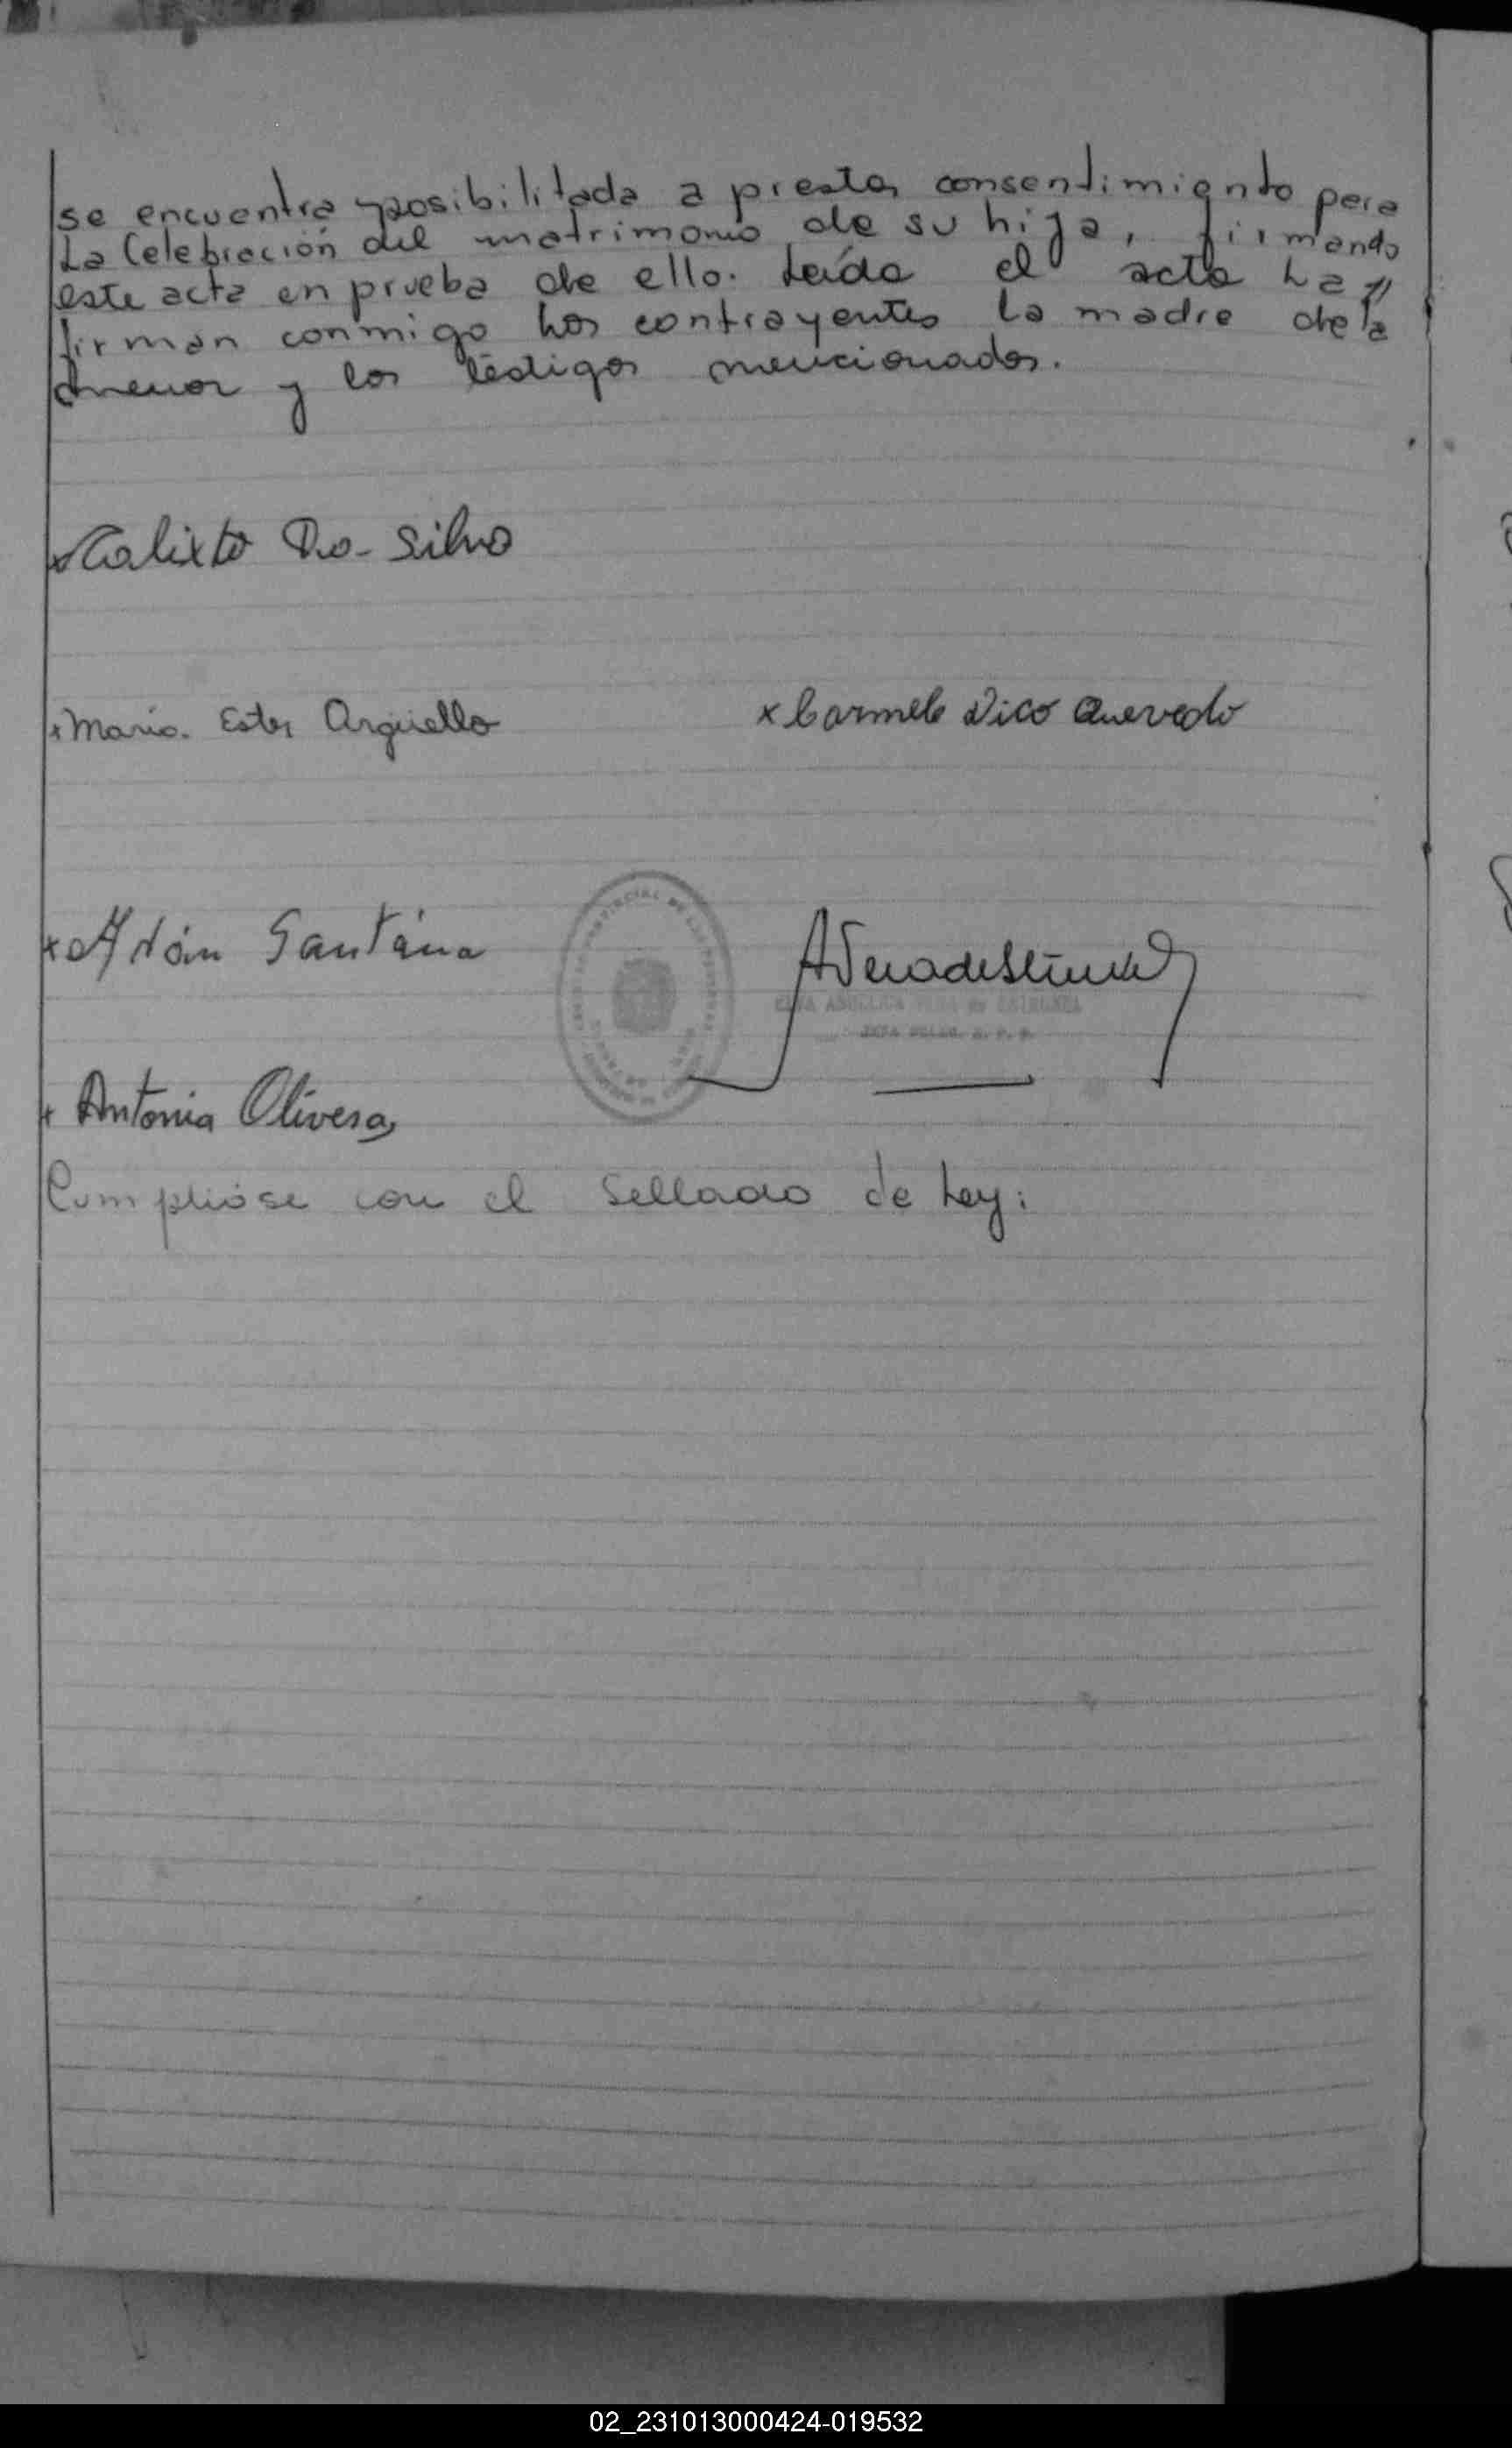 se encuentra posibilitada a prestar consentimiento para
La Celebración del matrimonio de su hija, firmando
este acta en prueba de ello. Leída el acta La
firman conmigo Los contrayentes La madre de la
menor y los testigos mencionados.
x Calixto Do-Silva
x Maria. Ester Argüello
x Carmelo Vico Quevedo
x Adán Santána
ELVA ANGELICA VERA de
x Antonia Olivera
Cumplióse con el Sellado de Ley:
02_231013000424-019532